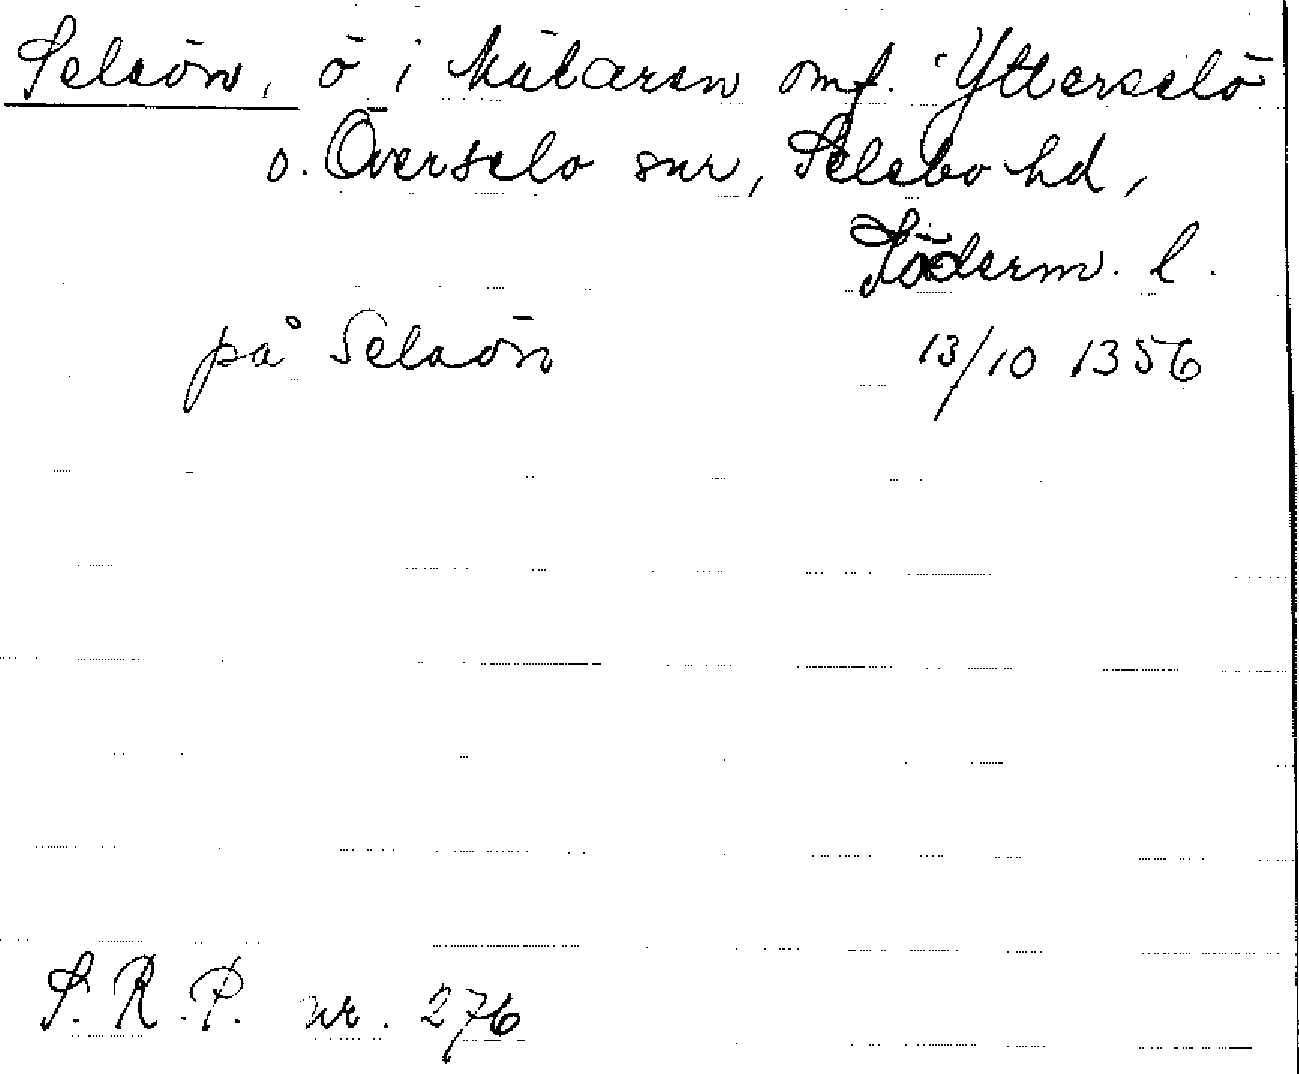 Selaön, ö i Mälaren omf. Ytterselö
o. Överselö snr, Selebo hd,
Söderm. l.
på Selaön 13/10 1356
S.R.P. nr. 276